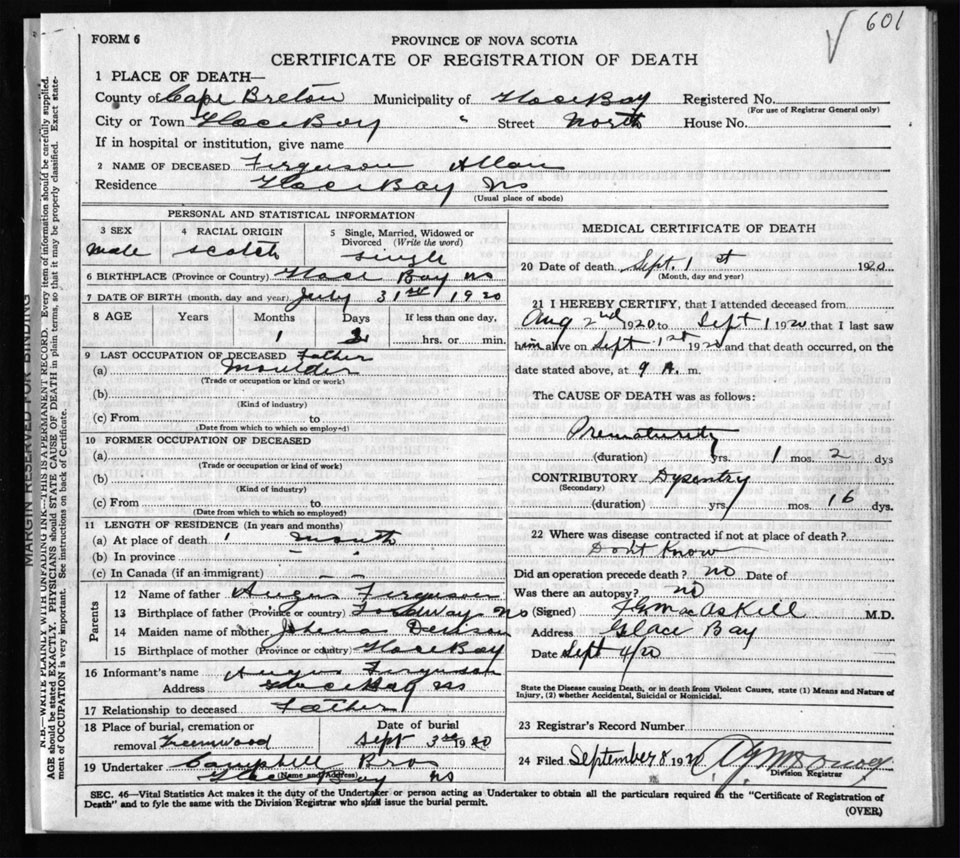 601
FORM 6
PROVINCE OF NOVA SCOTIA
CERTIFICATE OF REGISTRATION OF DEATH
1 PLACE OF DEATH—
County of Cape Breton Municipality of Glace Bay Registered No.
(For use of Registrar General only)
City or Town Glace Bay " Street North House No.
If in hospital or institution, give name
2 NAME OF DECEASED Ferguson Allan
Residence Glace Bay NS
(Usual place of abode)
PERSONAL AND STATISTICAL INFORMATION
3 SEX male 4 RACIAL ORIGIN scotch 5 Single, Married, Widowed or Divorced (Write the word) single
6 BIRTHPLACE (Province or Country) Glace Bay NS
7 DATE OF BIRTH (month, day and year) July 31st 1920
8 AGE Years Months Days If less than one day,
1 2 hrs. or min.
9 LAST OCCUPATION OF DECEASED Father
(a) Moulder
(Trade or occupation or kind or work)
(b)
(Kind of industry)
(c) From to
(Date from which to which so employed)
10 FORMER OCCUPATION OF DECEASED
(a)
(Trade or occupation or kind of work)
(b)
(Kind of industry)
(c) From to
(Date from which to which so employed)
11 LENGTH OF RESIDENCE (In years and months)
(a) At place of death 1 month
(b) In province
(c) In Canada (if an immigrant)
Parents
12 Name of father Angus Ferguson
13 Birthplace of father (Province or country) NS
14 Maiden name of mother
15 Birthplace of mother (Province or country) Glace Bay
16 Informant's name Angus Ferguson
Address Glace Bay NS
17 Relationship to deceased Father
18 Place of burial, cremation or Date of burial
removal Greenwood Sept 3rd 1920
19 Undertaker Campbell Bros
(Name and Address)
Glace Bay NS
MEDICAL CERTIFICATE OF DEATH
20 Date of death Sept. 1st 1920
(Month, day and year)
21 I HEREBY CERTIFY, that I attended deceased from
Aug 2nd 1920 to Sept 1 1920 that I last saw
him alive on Sept 1st 1920 and that death occurred, on the
date stated above, at 9 A. m.
The CAUSE OF DEATH was as follows:
Prematurity
(duration) yrs. 1 mos. 2 dys
CONTRIBUTORY Dysentry
(Secondary)
(duration) yrs. mos. 16 dys.
22 Where was disease contracted if not at place of death?
Dont Know
Did an operation precede death? no Date of
Was there an autopsy? no
(Signed) MacAskill M.D.
Address Glace Bay
Date Sept 4/20
State the Disease causing Death, or in death from Violent Causes, state (1) Means and Nature of
Injury, (2) whether Accidental, Suicidal or Homicidal.
23 Registrar's Record Number
24 Filed September 8 19
Division Registrar
SEC. 46—Vital Statistics Act makes it the duty of the Undertaker or person acting as Undertaker to obtain all the particulars required in the "Certificate of Registration of
Death" and to fyle the same with the Division Registrar who shall issue the burial permit.
(OVER)
MARGIN RESERVED FOR BINDING
N.B.—WRITE PLAINLY WITH UNFADING INK—THIS IS A PERMANENT RECORD. Every item of information should be carefully supplied.
AGE should be stated EXACTLY. PHYSICIANS should STATE CAUSE OF DEATH in plain terms, so that it may be properly classified. Exact state-
ment of OCCUPATION is very important. See instructions on back of Certificate.